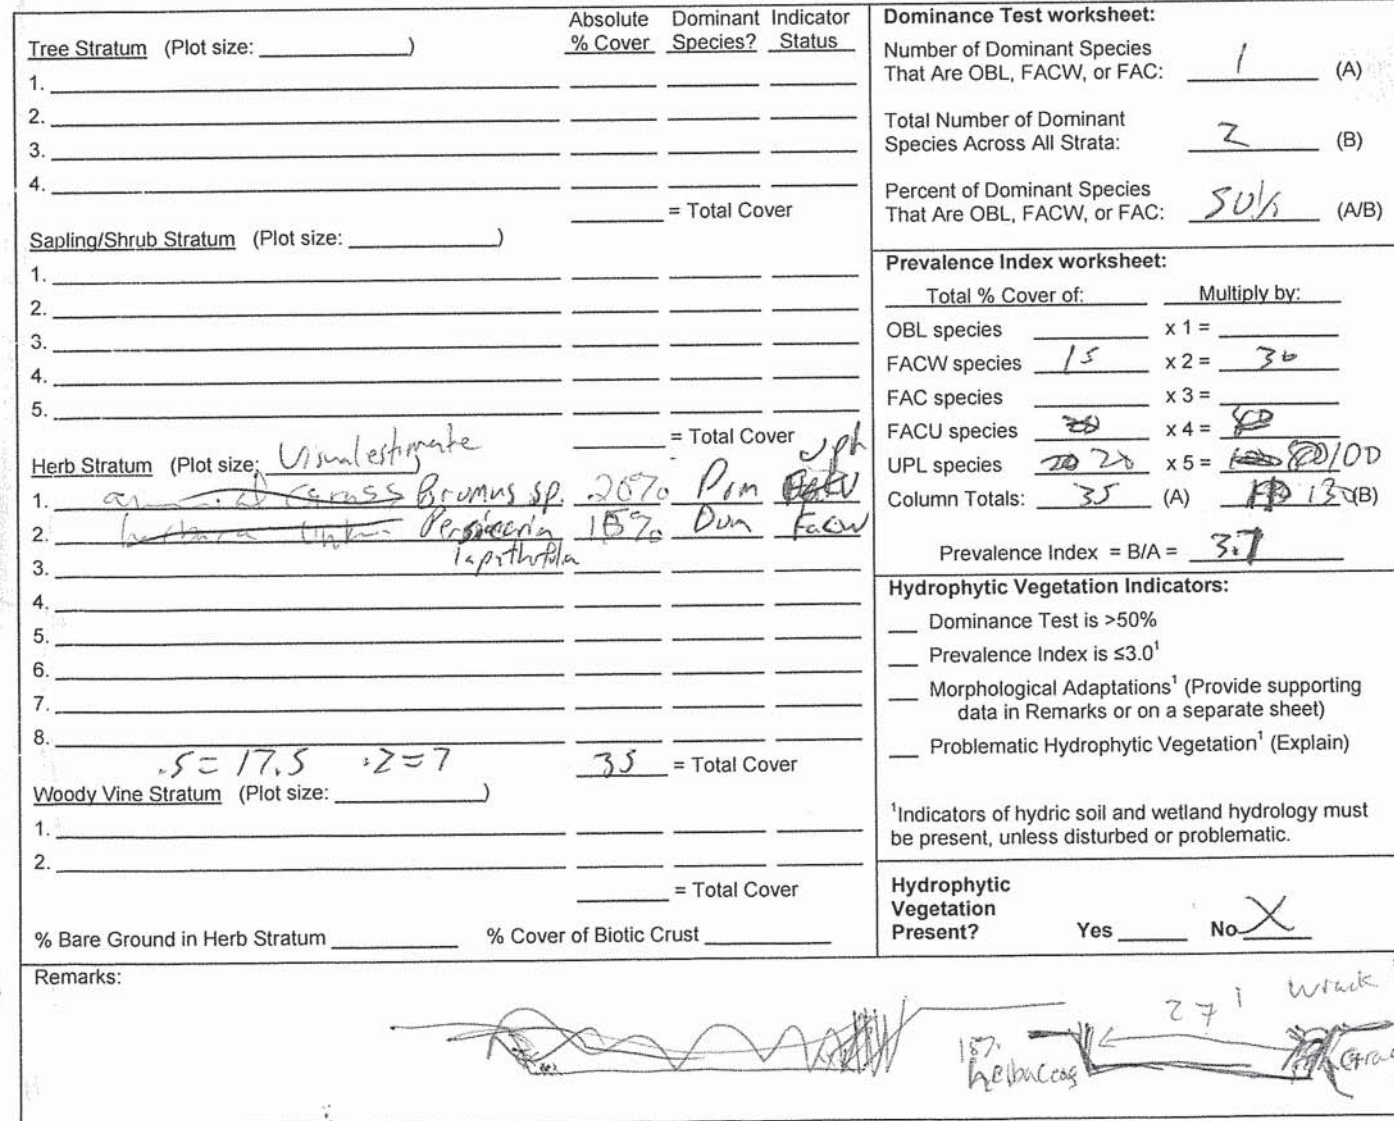 Absolute Dominant Indicator
Tree Stratum (Plot size: ____________) % Cover Species? Status
1.
2.
3.
4.
= Total Cover
Sapling/Shrub Stratum (Plot size: ____________)
1.
2.
3.
4.
5.
= Total Cover
Herb Stratum (Plot size: Visual estimate) uph
1. Grass Bromus sp. 20% Dom
2. Persicaria 15% Dom Facw
lapathifolia
3.
4.
5.
6.
7.
8.
.5 = 17.5 .2 = 7 35 = Total Cover
Woody Vine Stratum (Plot size: ____________)
1.
2.
= Total Cover
% Bare Ground in Herb Stratum ____________ % Cover of Biotic Crust ____________
Dominance Test worksheet:
Number of Dominant Species
That Are OBL, FACW, or FAC: 1 (A)
Total Number of Dominant
Species Across All Strata: 2 (B)
Percent of Dominant Species
That Are OBL, FACW, or FAC: 50% (A/B)
Prevalence Index worksheet:
Total % Cover of: Multiply by:
OBL species x 1 =
FACW species 15 x 2 = 30
FAC species x 3 =
FACU species x 4 =
UPL species 20 x 5 = 100
Column Totals: 35 (A) 130 (B)
Prevalence Index = B/A = 3.7
Hydrophytic Vegetation Indicators:
Dominance Test is >50%
Prevalence Index is ≤3.0¹
Morphological Adaptations¹ (Provide supporting
data in Remarks or on a separate sheet)
Problematic Hydrophytic Vegetation¹ (Explain)
¹Indicators of hydric soil and wetland hydrology must
be present, unless disturbed or problematic.
Hydrophytic
Vegetation
Present? Yes ______ No X
Remarks:
27' wrack
15%